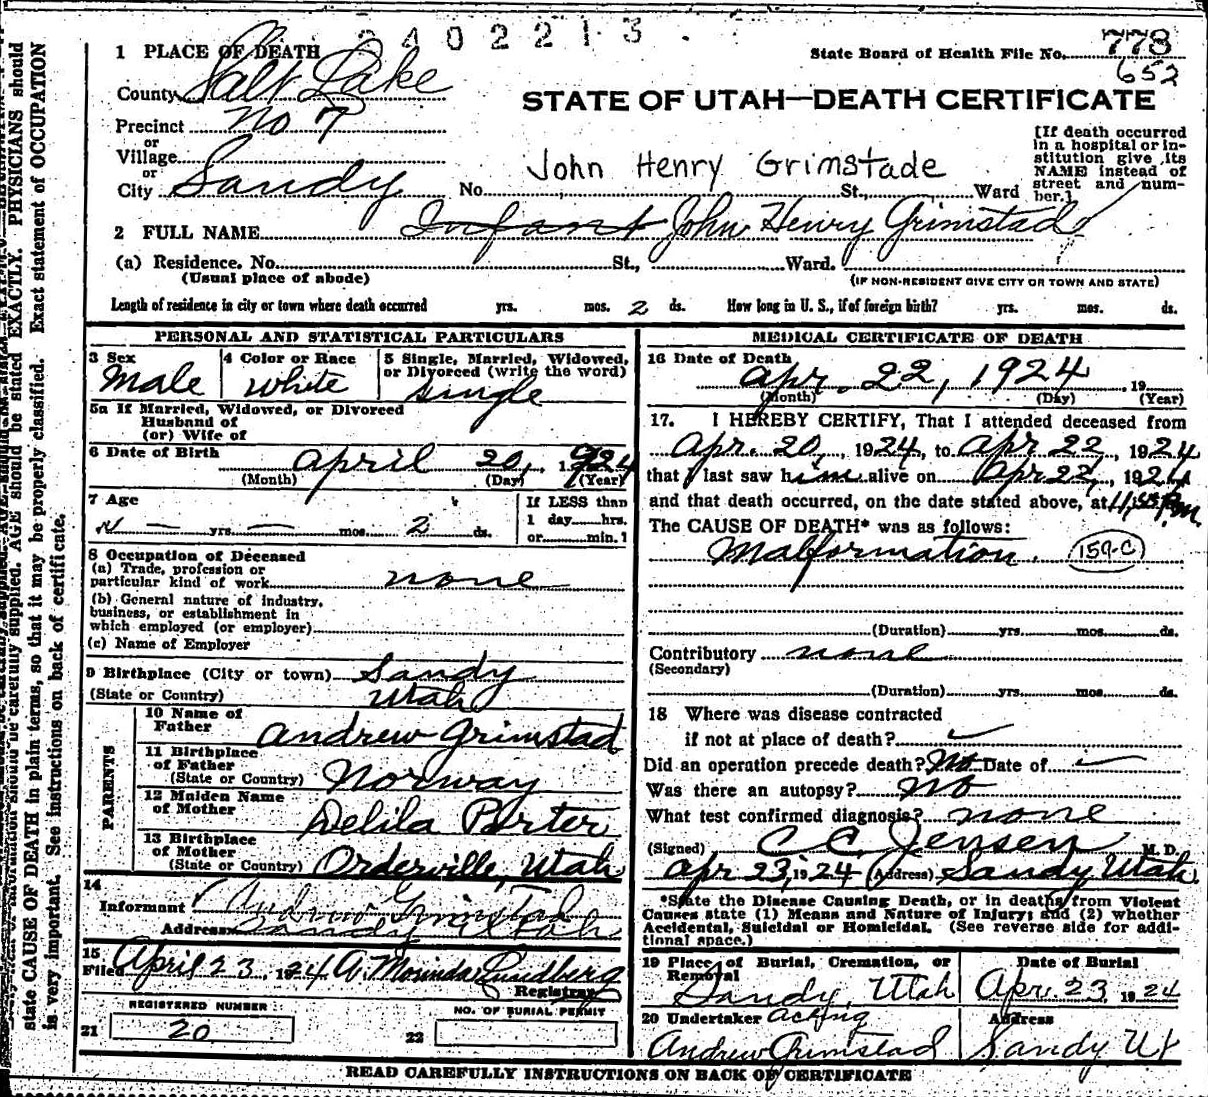 2402213
1 PLACE OF DEATH
State Board of Health File No. 778
652
County Salt Lake
STATE OF UTAH—DEATH CERTIFICATE
Precinct No 7
or
Village
or
City Sandy No. St., Ward
John Henry Grimstade
[If death occurred
in a hospital or in-
stitution give its
NAME instead of
street and num-
ber.]
2 FULL NAME Infant John Henry Grimstad
(a) Residence. No. St., Ward.
(Usual place of abode)
(IF NON-RESIDENT GIVE CITY OR TOWN AND STATE)
Length of residence in city or town where death occurred yrs. mos. 2 ds. How long in U. S., if of foreign birth? yrs. mos. ds.
PERSONAL AND STATISTICAL PARTICULARS
3 Sex
Male
4 Color or Race
White
5 Single, Married, Widowed,
or Divorced (write the word)
Single
5a If Married, Widowed, or Divorced
Husband of
(or) Wife of
6 Date of Birth April 20, 1924
(Month) (Day) (Year)
7 Age
yrs. mos. 2 ds.
If LESS than
1 day hrs.
or min.
8 Occupation of Deceased
(a) Trade, profession or
particular kind of work none
(b) General nature of industry,
business, or establishment in
which employed (or employer)
(c) Name of Employer
9 Birthplace (City or town) Sandy
(State or Country) Utah
PARENTS
10 Name of
Father Andrew Grimstad
11 Birthplace
of Father
(State or Country) Norway
12 Maiden Name
of Mother Delila Porter
13 Birthplace
of Mother
(State or Country) Orderville, Utah
14
Informant Andrew Grimstad
Address Sandy Utah
15
Filed April 23, 1924 A. Morinda Lundberg
Registrar
REGISTERED NUMBER
21 20
NO. OF BURIAL PERMIT
22
MEDICAL CERTIFICATE OF DEATH
16 Date of Death
Apr. 22, 1924 , 19
(Month) (Day) (Year)
17. I HEREBY CERTIFY, That I attended deceased from
Apr. 20, 1924, to Apr 22, 1924
that I last saw him alive on Apr 22, 1924
and that death occurred, on the date stated above, at P.m.
The CAUSE OF DEATH* was as follows:
Malformation. 159-C
(Duration) yrs. mos. ds.
Contributory none
(Secondary)
(Duration) yrs. mos. ds.
18 Where was disease contracted
if not at place of death?
Did an operation precede death? No Date of
Was there an autopsy? No
What test confirmed diagnosis? none
(Signed) C C Jensen M. D.
Apr 23, 1924 (Address) Sandy Utah.
*State the Disease Causing Death, or in deaths from Violent
Causes state (1) Means and Nature of Injury; and (2) whether
Accidental, Suicidal or Homicidal. (See reverse side for addi-
tional space.)
19 Place of Burial, Cremation, or
Removal
Sandy, Utah
Date of Burial
Apr. 23 1924
20 Undertaker Acting
Andrew Grimstad
Address
Sandy Ut
READ CAREFULLY INSTRUCTIONS ON BACK OF CERTIFICATE
AGE should be stated EXACTLY. PHYSICIANS should
state CAUSE OF DEATH in plain terms, so that it may be properly classified. Exact statement of OCCUPATION
is very important. See instructions on back of certificate.